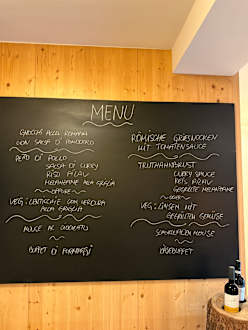 MENU
GNOCCHI ALLA ROMANA
CON SALSA DI POMODORO
PETTO DI POLLO
SALSA DI CURRY
RISO PILAV
MELANZANE ALLA GRIGLIA
OPPURE
VEG: LENTICCHIE CON VERDURA
ALLA GRIGLIA
MOUSE AL CIOCCOLATO
BUFFET DI FORMAGGI
RÖMISCHE GRIESNOCKEN
MIT TOMATENSAUCE
TRUTHAHNBRUST
CURRY SAUCE
REIS PILAV
GEGRILLTE MELANZANE
ODER
VEG: LINSEN MIT
GEGRILLTEN GEMÜSE
SCHOKOLADEN MOUSE
KÄSEBUFFET